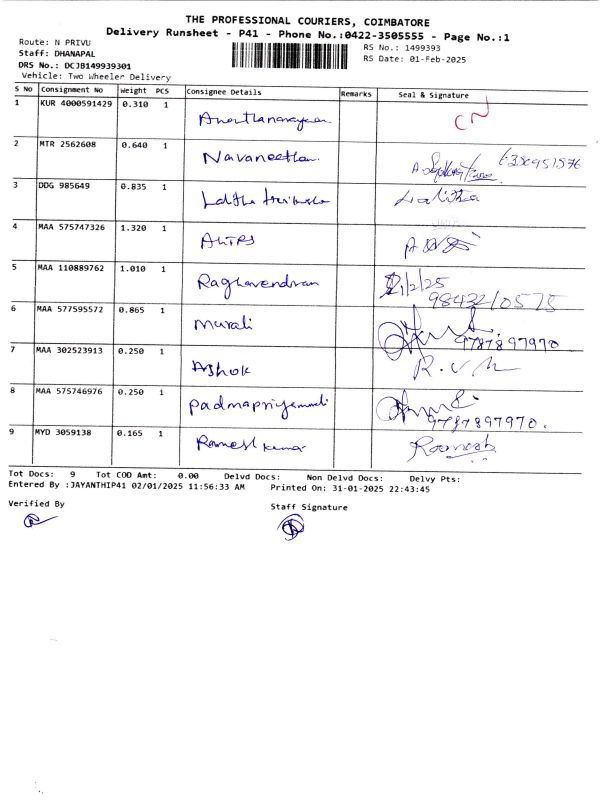 THE PROFESSIONAL COURIERS, COIMBATORE
Delivery Runsheet - P41 - Phone No.:0422-3505555 - Page No.:1
Route: N PRIVU
RS No.: 1499393
Staff: DHANAPAL
RS Date: 01-Feb-2025
DRS No.: DCJB149939301
Vehicle: Two Wheeler Delivery
S No Consignment No Weight PCS Consignee Details Remarks Seal & Signature
1 KUR 4000591429 0.310 1 Ananthanarayanan CN
2 MTR 2562608 0.640 1 Navaneethan
3 DDG 985649 0.835 1 Lalitha
4 MAA 575747326 1.320 1
5 MAA 110889762 1.010 1 Raghavendran 1/2/25
9843210575
6 MAA 577595572 0.865 1 Murali
9787897970
7 MAA 302523913 0.250 1 Ashok R.V.
8 MAA 575746976 0.250 1 Padmapriya
9787897970.
9 MYD 3059138 0.165 1 Ramesh Kumar Ramesh
Tot Docs: 9 Tot COD Amt: 0.00 Delvd Docs: Non Delvd Docs: Delvy Pts:
Entered By :JAYANTHIP41 02/01/2025 11:56:33 AM Printed On: 31-01-2025 22:43:45
Verified By
Staff Signature